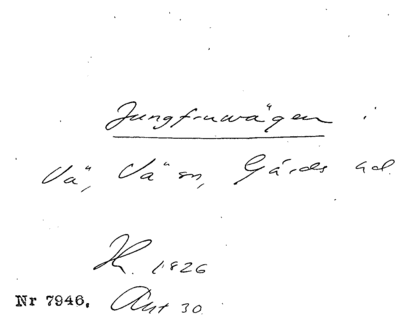 Jungfruvägen i
Vä, Vä sn, Gärds hd.
H. 1826
Nr 7946. Ant 30